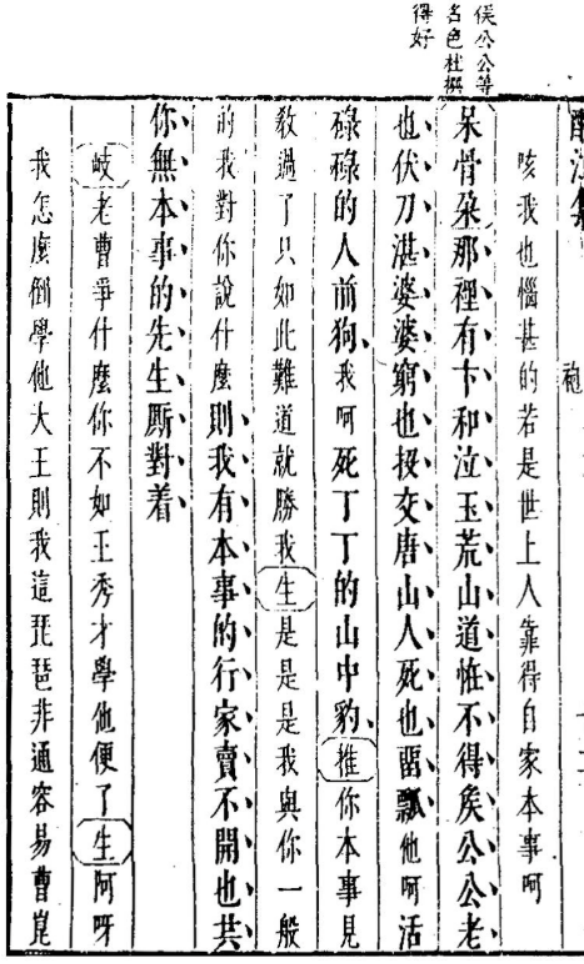 侯公公等
名色杜撰
得好
咳我也惱甚的若是世上人靠得自家本事呵
呆骨朶那裡有卞和泣玉荒山道恠不得矦公公老
也伏刀湛婆婆窮也投交唐山人死也畱瓢他呵活
碌碌的人前狗我呵死丁丁的山中豹推你本事見
敎過了只如此難道就勝我生是是是我與你一般
的我對你說什麽則我有本事的行家賣不開也共
你無本事的先生厮對着
岐老曹爭什麽你不如王秀才學他便了生阿呀
我怎麽倒學他大王則我這琵琶非通容易曹崑